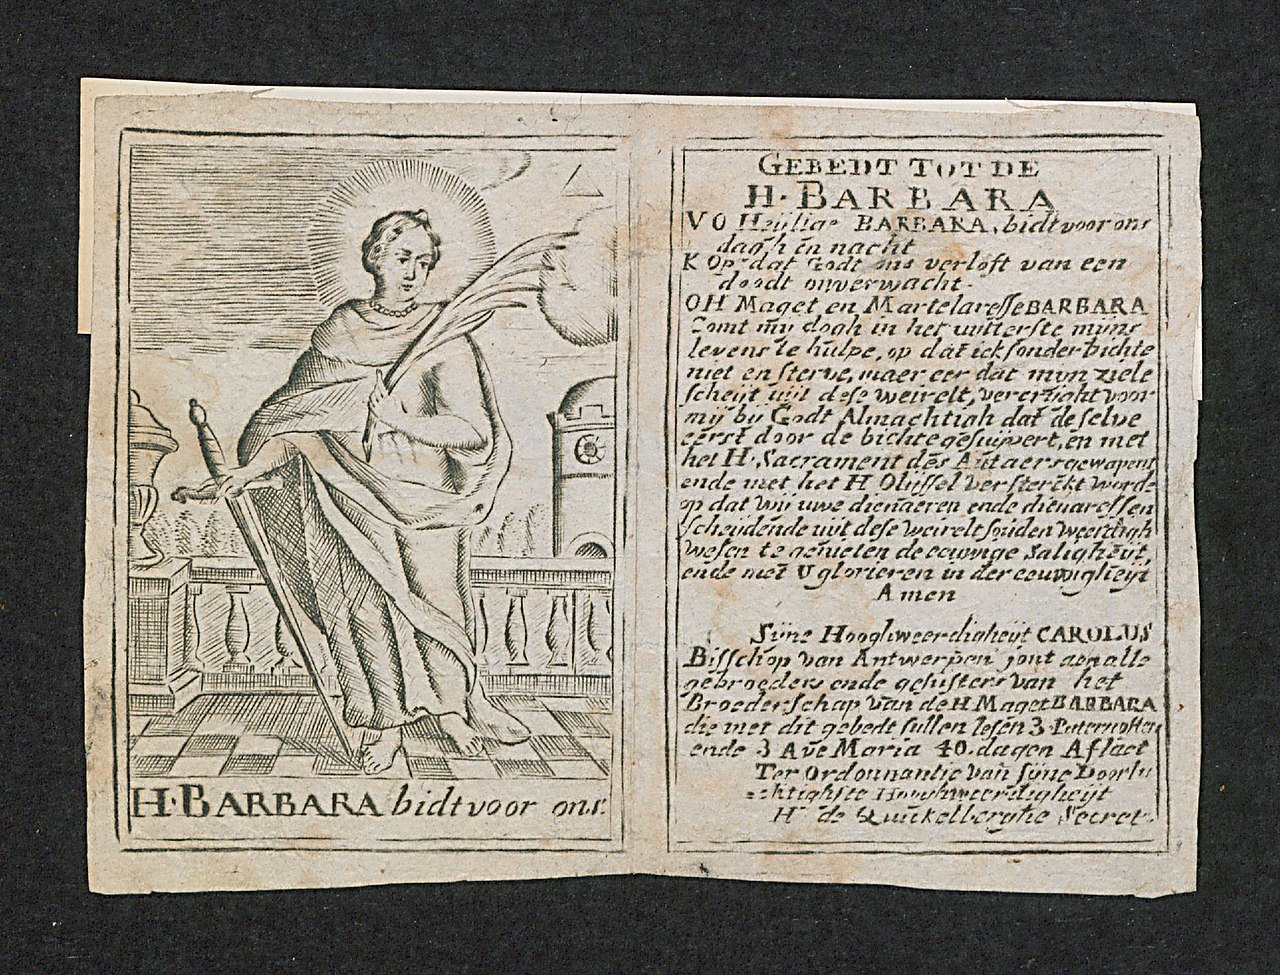 H. BARBARA bidt voor ons.
GEBEDT TOT DE
H. BARBARA
V O Heylige BARBARA, bidt voor ons
dagh en nacht
R Op dat Godt ons verlost van een
doodt onverwacht.
OH Maget en Martelaresse BARBARA
Comt my dogh in het uytterste myns
levens te hulpe, op dat ick sonder bichte
niet en sterve, maer eer dat myn ziele
scheyt uyt dese weirelt, vercryght voor
mij by Godt Almachtigh dat de selve
eerst door de bichte gesuyvert, en met
het H. Sacrament des Autaers gewapent
ende met het H Olijssel versterckt worde
op dat wij uwe dienaeren ende dienaressen
scheydende uijt dese weirelt souden weerdigh
wesen te genieten de eeuwige Saligheyt,
ende met U glorieren in der eeuwigheyt
Amen
Sijne Hooghweerdigheyt CAROLUS
Bisschop van Antwerpen jont aen alle
gebroeders ende gesusters van het
Broederschap van de H Maget BARBARA
die met dit gebedt sullen lesen 3. Paternosters
ende 3 Ave Maria 40. dagen Aflaet
Ter Ordonnantie van sijne Doorlu
chtighste Hooghweerdigheijt
H. de Quickelberghe Secret.